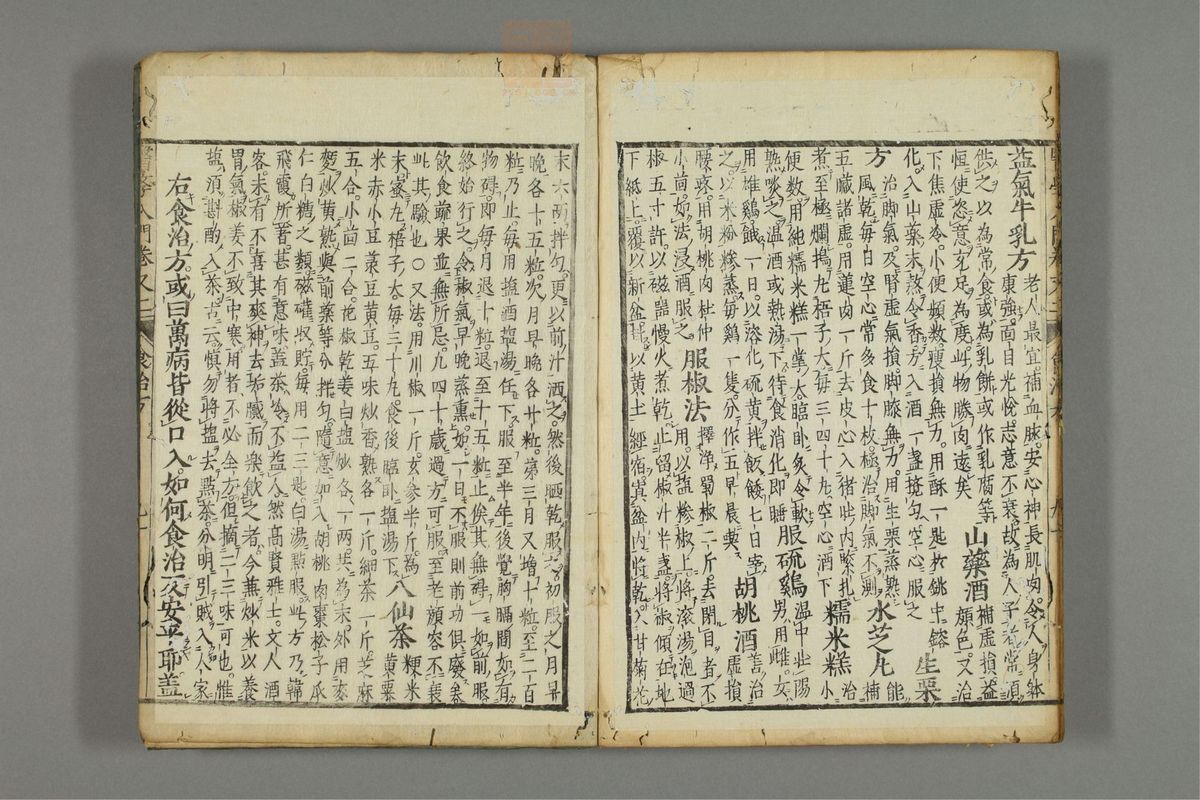 益氣牛乳方 老人最宜補血脉安心神長肌肉令人身躰
康強面目光悅志意不衰故為人子者常須
供之以為常食或為乳餅或作乳腐等
恒使恣意充足為度此物勝肉遠矣 山藥酒 補虛損益
顏色又治
下焦虛冷小便頻數瘦損無力用酥一匙於銚中鎔
化入山藥末蒸令香方入酒一盞攪勻空心服之 生栗
方 治脚氣及腎虛氣損脚膝無力用生栗蒸熟
風乾每日空心常多食十枚極治脚氣不測 水芝丸 能
補
五臟諸虛用蓮肉一斤去皮心入猪肚內緊扎
煮至極爛搗丸梧子大每三四十丸空心酒下 糯米糕 治
小
便数用純糯米糕一掌大臨卧炙令軟
熟啖之温酒或熱湯下待食消化即睡 服硫鷄 温中壯陽
男用雌女
用雄鷄餓一日以溶化硫黃拌飯餧七日宰
之以米粉糝蒸每鷄一隻分作五早晨喫 胡桃酒 善治
虛損
腰疼用胡桃肉杜仲
小茴如法浸酒服之 服椒法 擇净蜀椒二斤去閉目者不
用以塩糝椒上將滾湯泡過
椒五寸許以磁器慢火煮乾止留椒汁半盞將椒傾在地
下紙上覆以新盆封以黃土經宿寘盆內將乾入甘菊花
末六两拌勻更以前汁洒之然後晒乾服之初服之月早
晚各十五粒次月早晚各廿粒第三月又增十粒至二百
粒乃止每用塩酒塩湯任下服至半年後覺胸膈間如有
物礙即每月退十粒退至十五粒止俟其無碍一如前服
終始行之令椒氣早晚蒸熏如一日不服則前功俱廢矣
飲食蔬果並無所忌凡四十歲過方可服至老顏容不衰
此其驗也○又法用川椒一斤玄參半斤為
末蜜丸梧子大每三十丸食後臨卧塩湯下 八仙茶 粳米
黃粟
米赤小豆菉豆黃豆五味炒香熟各一斤細茶一斤芝麻
五合小茴二合花椒乾姜白塩炒各一两共為末外用麥
麪炒黃熟與前藥等分拌勻隨意加入胡桃肉棗松子瓜
仁白糖之類磁罐收貯每用二三匙白湯點服此方乃韓
飛霞所著甚有意味盖茶冷不益人然高賢雅士文人酒
客未有不喜其爽神去垢膩而樂飲之者今兼炒米以養
胃氣椒姜不致中寒用者不必全方但摘二三味可也惟
塩須斟酌入茶古云慎勿將塩去點茶分明引賊入人家
右食治方或曰萬病皆從口入如何食治反安乎耶盖